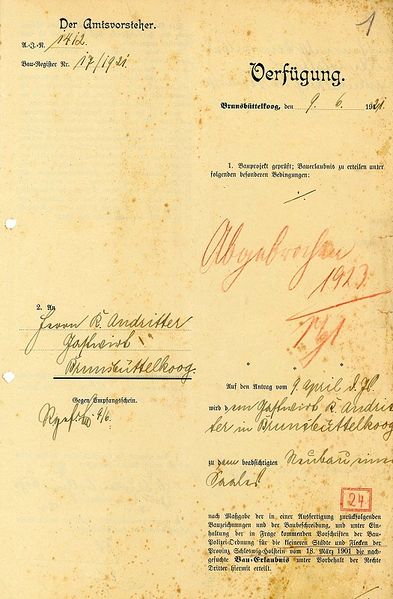 1
Der Amtsvorsteher.
A.-J.-N. 1412
Bau-Register Nr. 17/1921
Verfügung.
Brunsbüttelkoog, den 9. 6. 1921
1. Bauprojekt geprüft; Bauerlaubnis zu erteilen unter
folgenden besonderen Bedingungen:
Abgebrochen
1923
2. An
Herrn K. Andritter
Gastwirt
Brunsbüttelkoog.
Gegen Empfangschein.
9/6.
Auf den Antrag vom 9. April d. Js.
wird dem Gastwirt K. Andrit
ter in Brunsbüttelkoog
zu dem beabsichtigten Neubau eines
Saales
24
nach Maßgabe der in einer Ausfertigung zurückfolgenden
Bauzeichnungen und der Baubeschreibung, und unter Ein-
haltung der in Frage kommenden Vorschriften der Bau-
Polizei-Ordnung für die kleineren Städte und Flecken der
Provinz Schleswig-Holstein vom 18. März 1901 die nach-
gesuchte Bau-Erlaubnis unter Vorbehalt der Rechte
Dritter hiermit erteilt.